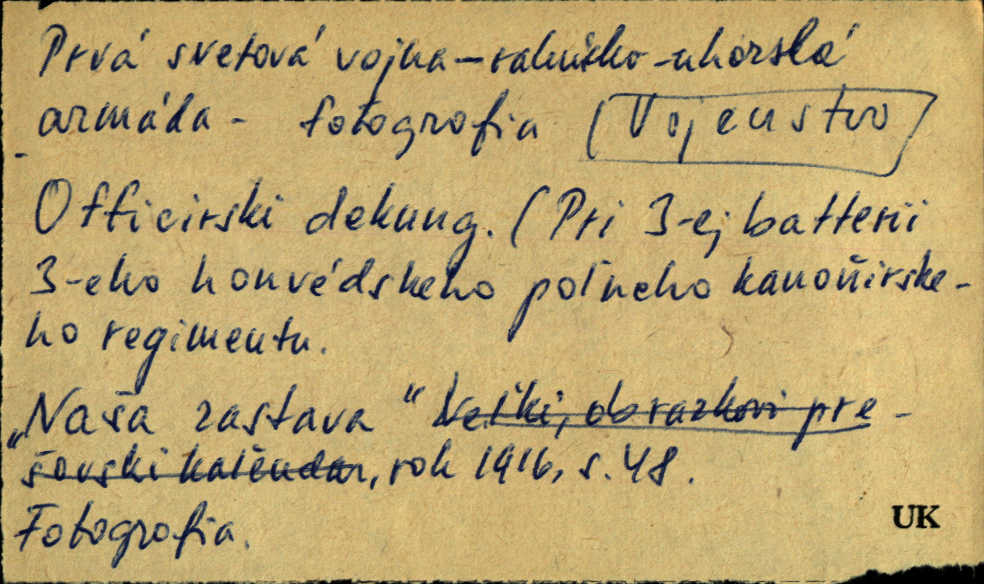 Prvá svetová vojna – rakúsko-uhorská
armáda - fotografia (Vojenstvo)
Officirski dekung. (Pri 3-ej batterii
3-eho honvédskeho poľneho kanoňirske-
ho regimentu.
„Naša zastava“ Veľki, obrazkovi pre-
šovski kalendar, rok 1916, s. 48.
Fotografia.
UK